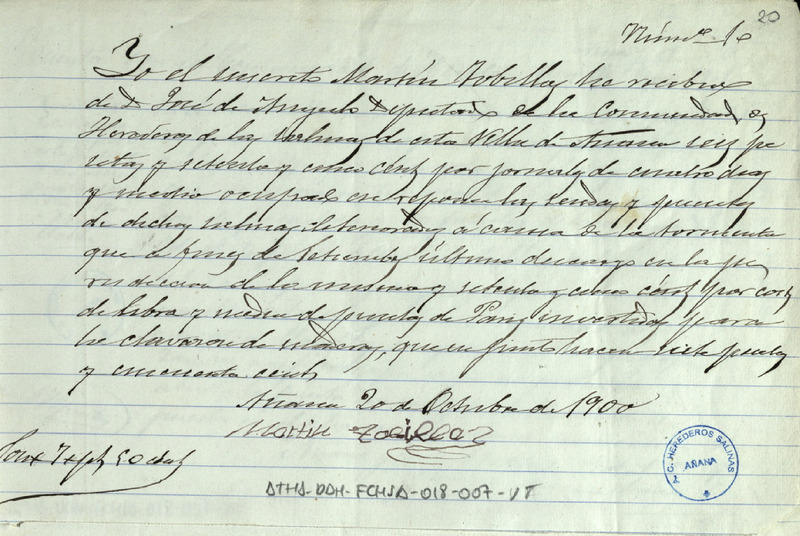 20
Núm.º 16
Yo el suscrito Martín Tobillas he recibido
de D. José de Angulo Depositario de la Comunidad de
Herederos de las salinas de esta Villa de Añana seis pe
setas y setenta y cinco cént.s por jornales de cuatro dias
y medio ocupados en reponer las sendas y puentes
de dichas salinas deteriorados á causa de la tormenta
que a fines de Setiembre último descargó en la ju
risdiccion de la misma y setenta y cinco cént.s por coste
de libra y media de puntas de Paris invertidas para
la clavazon de maderas, que en junto hacen siete pesetas
y cincuenta cent.s
Añana 20 de Octubre de 1900
Martin Tobillas
Son 7 pts 50 cént.s
C. HEREDEROS SALINAS
AÑANA
ATHA-DAH-FCHSA-018-007-VT